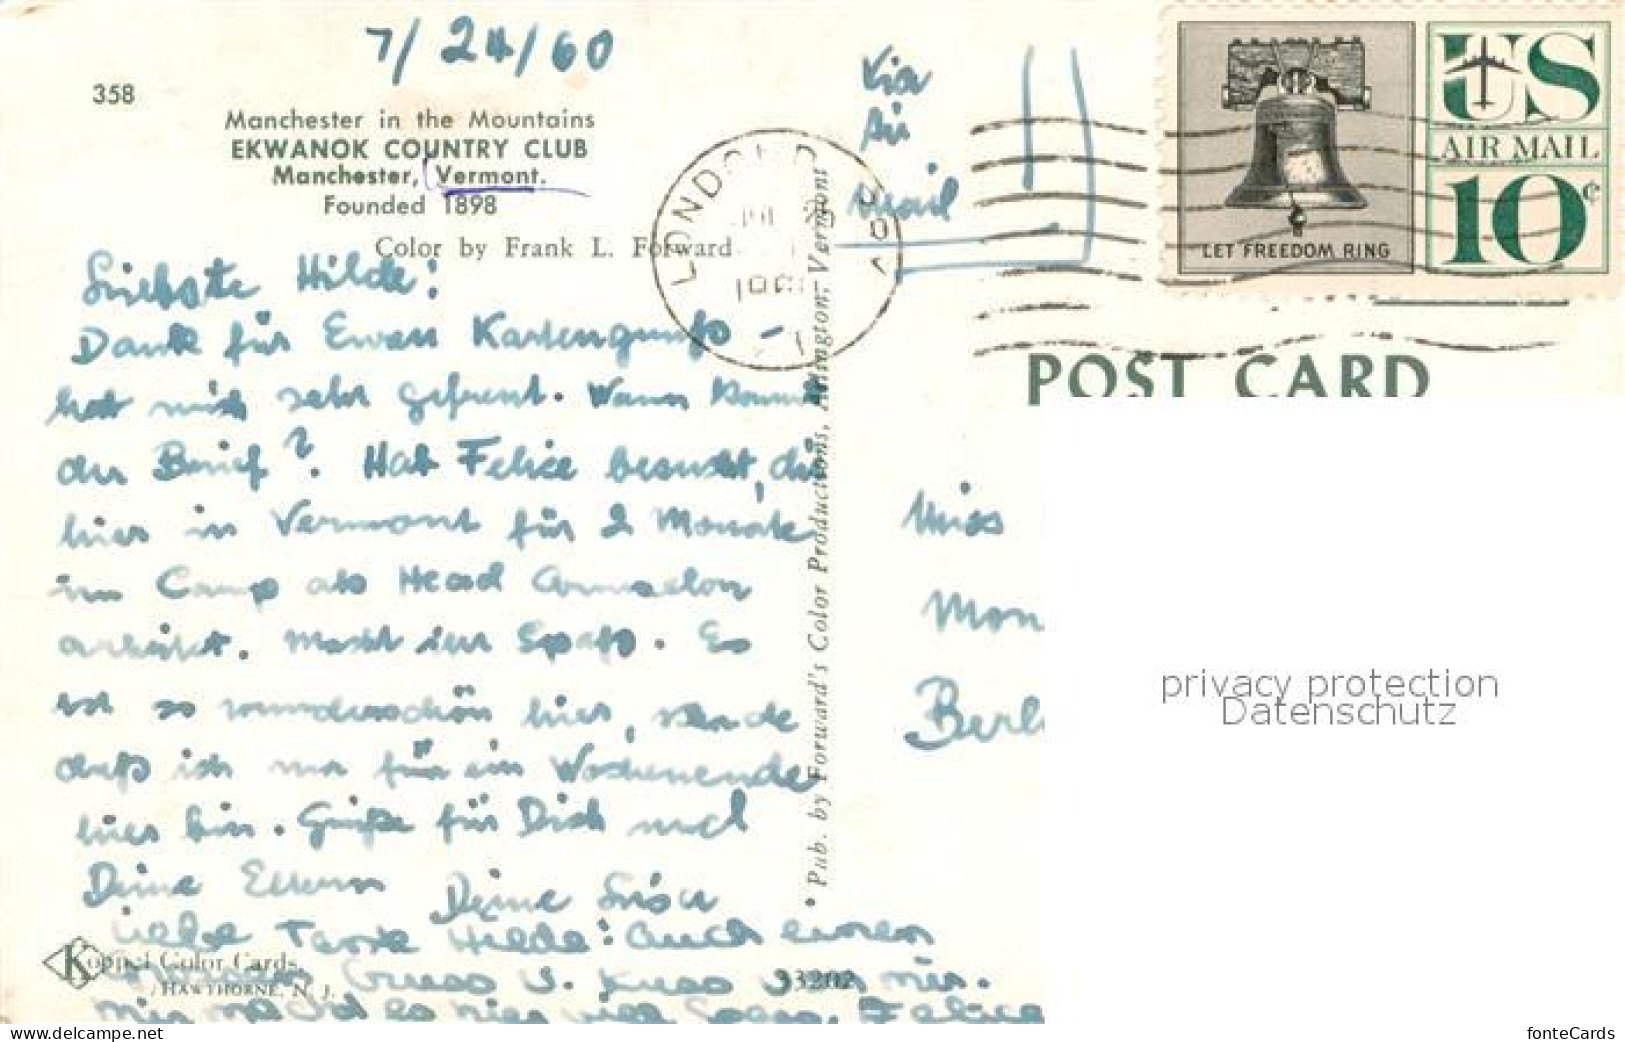 7/24/60
358
Manchester in the Mountains
EKWANOK COUNTRY CLUB
Manchester, Vermont.
Founded 1898
Color by Frank L. Forward
Via
Air
Mail
US
AIR MAIL
10¢
LET FREEDOM RING
POST CARD
Hilde:
Dank für Kartengruß –
hat mich sehr gefreut. Wann kommt
der Brief? Hat Felice besucht, die
hier in Vermont für 2 Monate
im Camp als Head Counselor
arbeitet. Macht ihr Spaß. Es
ist so wunderschön hier, schade
daß ich nur für ein Wochenende
hier bin. Grüße für Dich und
Deine Eltern Deine
Liebe Tante Hilde: auch einen
Gruss u. Kuss von mir.
Mir es hier viel Felice
Miss
Mon
Berl
Pub. by Forward's Color Productions, Arlington, Vermont
Koppel Color Cards.
HAWTHORNE, N. J.
33202
privacy protection
Datenschutz
www.delcampe.net
fonteCards